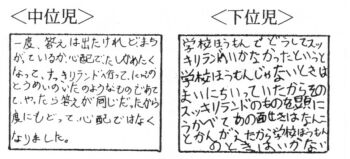 <中位児>
一度、答えは出たけれどまち
がっているか心配でたしかめたく
なって、すっきりランドへ行って、にんじん
とうめいのいたのようなものであて
て、やったら答えが同じだったから
度にもどって、心配ではなく
なりました。
<下位児>
学校ほうもんでどうしてスッ
キリランドへいかなかったといっと
学校ほうもんじゃないときは
まいにちいっていたからその
スッキリランドのものを頭に
うかべてあの面せきはなんこ
とかんがえたから学校ほうもん
のときはいかない